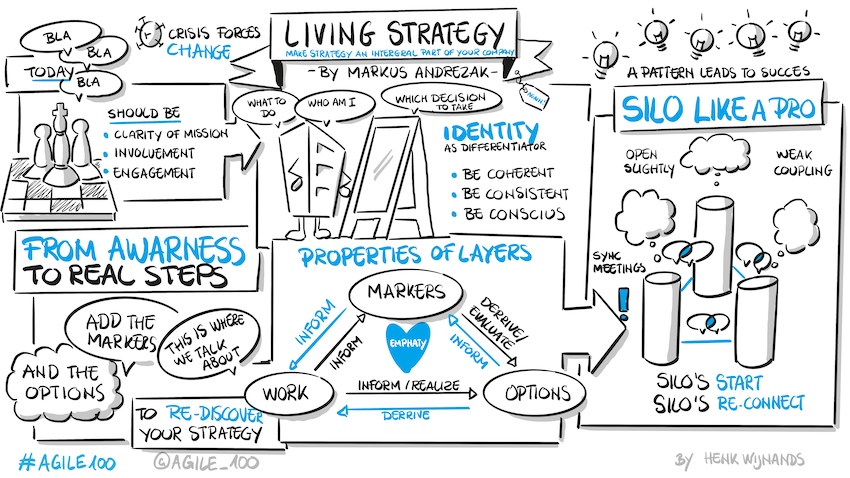 BLA
BLA
BLA
TODAY
CRISIS FORCES
CHANGE
LIVING STRATEGY
MAKE STRATEGY AN INTERGRAL PART OF YOUR COMPANY
- BY MARKUS ANDREZAK -
A PATTERN LEADS TO SUCCES
SHOULD BE
• CLARITY OF MISSION
• INVOLVEMENT
• ENGAGEMENT
WHAT TO
DO
WHO AM I
WHICH DECISION
TO TAKE
IDENTITY
AS DIFFERENTIATOR
• BE COHERENT
• BE CONSISTENT
• BE CONSCIUS
SILO LIKE A PRO
OPEN
SLIGHTLY
WEAK
COUPLING
SYNC
MEETINGS
!
SILO'S START
SILO'S RE-CONNECT
FROM AWARNESS
TO REAL STEPS
ADD THE
MARKERS
THIS IS WHERE
WE TALK
ABOUT
AND THE
OPTIONS
TO RE-DISCOVER
YOUR STRATEGY
PROPERTIES OF LAYERS
MARKERS
INFORM
INFORM
EMPHATY
DERRIVE/
EVALUATE
INFORM
WORK
INFORM / REALIZE
DERRIVE
OPTIONS
#AGILE100
@AGILE_100
BY HENK WIJNANDS